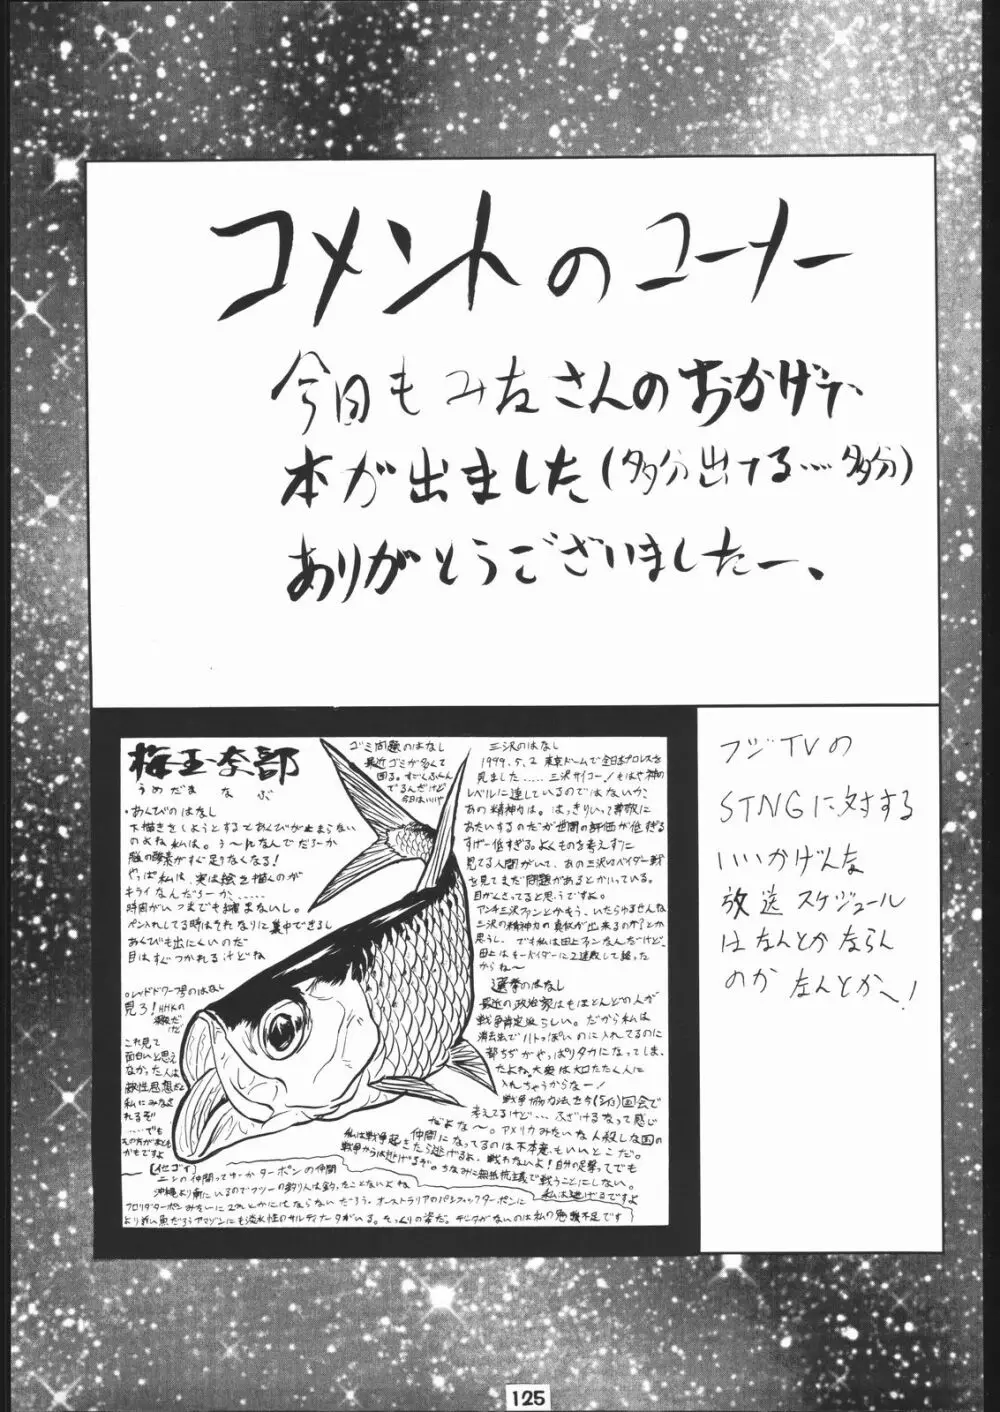 コメントのコーナー
今日もみなさんのおかげで、
本が出ました(多分出てる……多分)
ありがとうございましたー、
梅玉奈部
うめだまなぶ
・あくびのはなし
下描きをしようとするとあくびが止まらない
のよね私は。う〜んなんでだろーか
脳の酸素がすぐ足りなくなる!
やっぱ私は、実は絵を描くのが
キライなんだろーか、……
時間がいつまでも縮まないし。
ペン入れしてる時はそれなりに集中できるし
あくびも出にくいのだ
目はすぐつかれるけどね
○レッドドワーフ号のはなし
見ろ!NHKの
深夜だ
けど
これ見て
面白いと思え
なかった人は
敵性思想だと
私にみなさ
れるぞ
……でも
その方が幸せ
かもですよ
ゴミ問題のはなし
最近ゴミが多くて
困る。すごくふくん
でるんだけど
今日はいいや
三沢のはなし
1999.5.2 東京ドームで全日本プロレスを
見ました……三沢サイコー!もはや神の
レベルに達しているのではないか、
あの精神力は。はっきりいって尊敬に
あたいするのだが世間の評価が低すぎる
すげー低すぎる。よくものを考えずに
見てる人間がいて、あの三沢VSベイダー戦
を見てまだ問題があるとかいっている。
目がくさってると思うですよ。
アンチ三沢ファンとかもう、いたらゆるせんな
三沢の精神力の真似が出来るのか?とか
思うし。でも私は田上ファンなんだけど、
田上はそーベイダーに2連敗して終った
からね〜
選挙のはなし
最近の政治家はもほとんどの人が
戦争肯定派らしい。だから私は
消去法でハトっぽいのに入れてるのに
都ちぢがやっぱりタカになってしま、
たよね。大衆は大口たたく人に
入れちゃうからなー!
戦争協力法を今(5/13)国会で
考えてるけど…ふざけるなって感じ
だよな〜。アメリカみたいな人殺しな国の
仲間になってるのは不本意もいいとこだ。
私は戦争起きたら逃げるよ、戦わないよ!自分の足撃ってでも
戦争からは逃げるぞ。ちなみに無抵抗主義で戦うことにしない。
私は逃げるですよ
[イセゴイ]
ニシンの仲間ってゆーかターポンの仲間
沖縄より南にいるのでフツーの釣り人は釣ったことないよね
フロリダターポンみたいに2mとかにはならないだろう。オーストラリアのパシフィックターポンに
より近い魚だろうアマゾンにも淡水性のサルディナータがいる。そっくりの姿だ。データがないのは私の勉強不足です
フジTVの
STNGに対する
いいかげんな
放送スケジュール
はなんとかならん
のか なんとかへ!
125